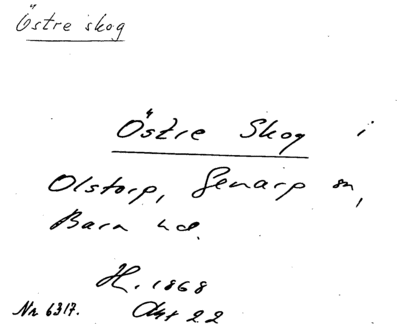 Östre skog
Östre Skog i
Olstorp, Genarp sn,
Bara hd.
H. 1868
Akt 22
Nr 6317.